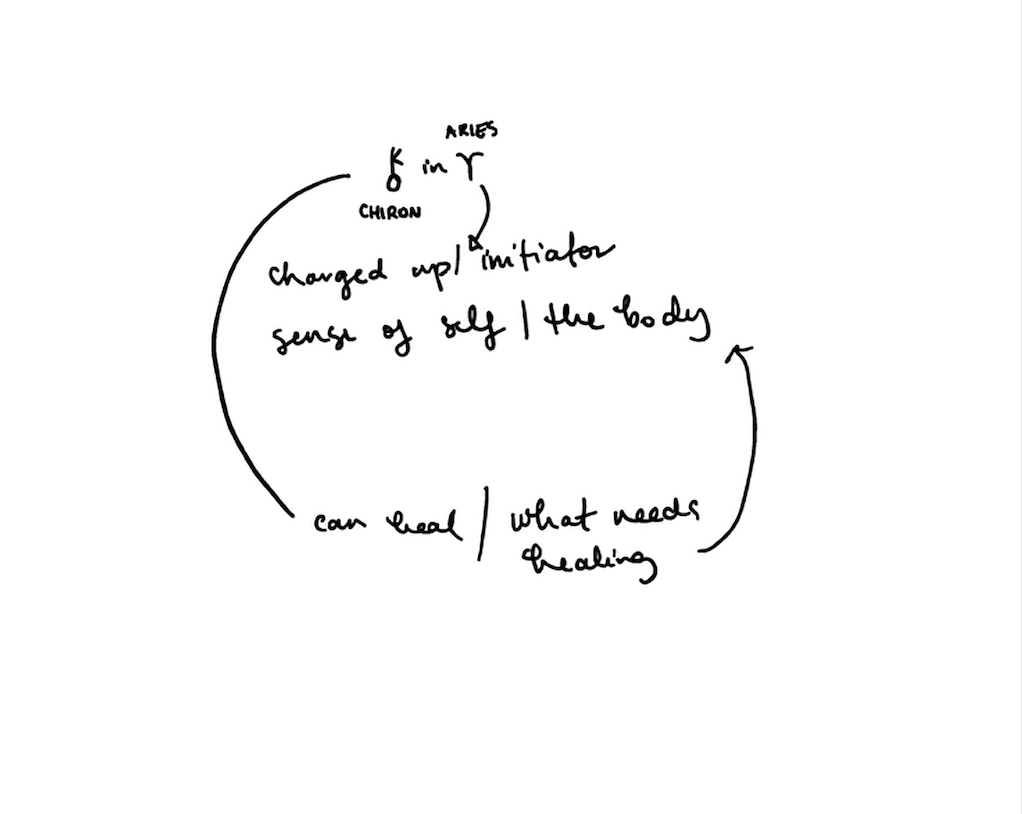 ARIES
⚷ in ♈
CHIRON
charged up/ initiator
sense of self | the body
can heal / what needs
healing